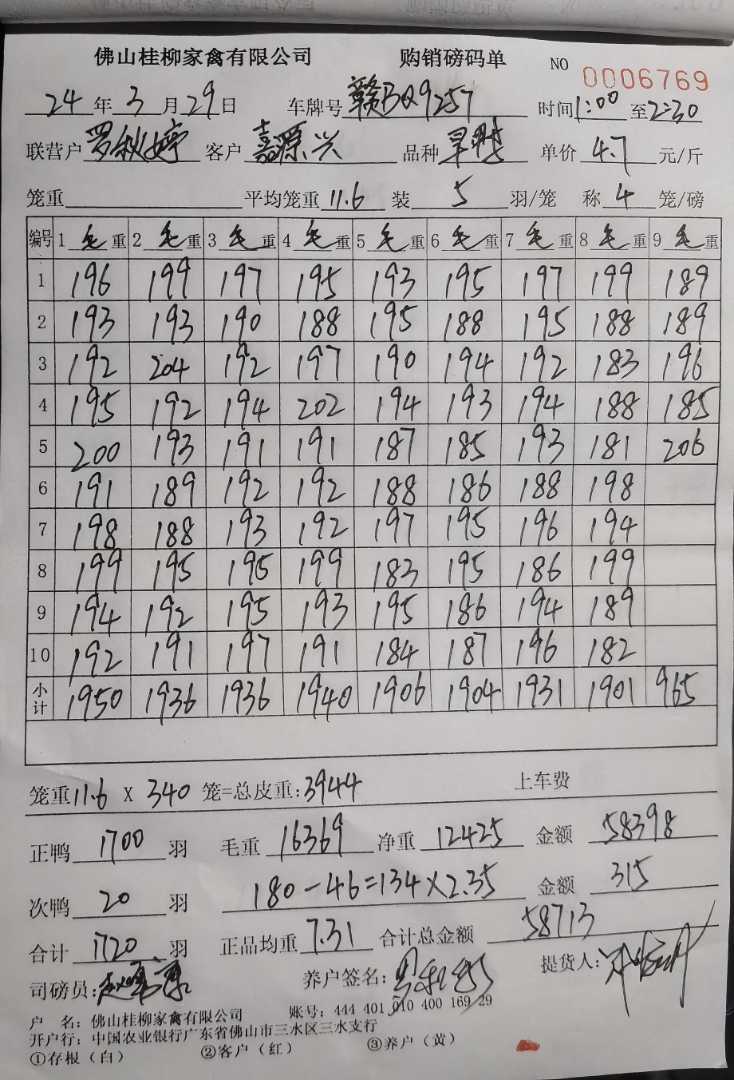 佛山桂柳家禽有限公司 购销磅码单 NO 0006769
24年3月29日 车牌号 赣BQ9257 时间1:00至2:30
联营户 罗秋婷 客户 嘉源兴 品种 旱鸭 单价 4.7 元/斤
笼重 平均笼重 11.6 装 5 羽/笼 称 4 笼/磅
编号 1 毛重 2 毛重 3 毛重 4 毛重 5 毛重 6 毛重 7 毛重 8 毛重 9 毛重
1 196 199 197 195 193 195 197 199 189
2 193 193 190 188 195 188 195 188 189
3 192 204 192 197 190 194 192 183 196
4 195 192 194 202 194 193 194 188 185
5 200 193 191 191 187 185 193 181 206
6 191 189 192 192 188 186 188 198
7 198 188 193 192 197 195 196 194
8 199 195 195 199 183 195 186 199
9 194 192 195 193 195 186 194 189
10 192 191 197 191 184 187 196 182
小计 1950 1936 1936 1940 1906 1904 1931 1901 965
笼重11.6 X 340 笼=总皮重:3944 上车费
正鸭 1700 羽 毛重 16369 净重 12425 金额 58398
次鸭 20 羽 180-46=134×2.35 金额 315
合计 1720 羽 正品均重 7.31 合计总金额 58713
司磅员: 养户签名: 提货人:
户 名: 佛山桂柳家禽有限公司 账号: 444 401 010 400 169 29
开户行: 中国农业银行广东省佛山市三水区三水支行
①存根(白) ②客户(红) ③养户(黄)